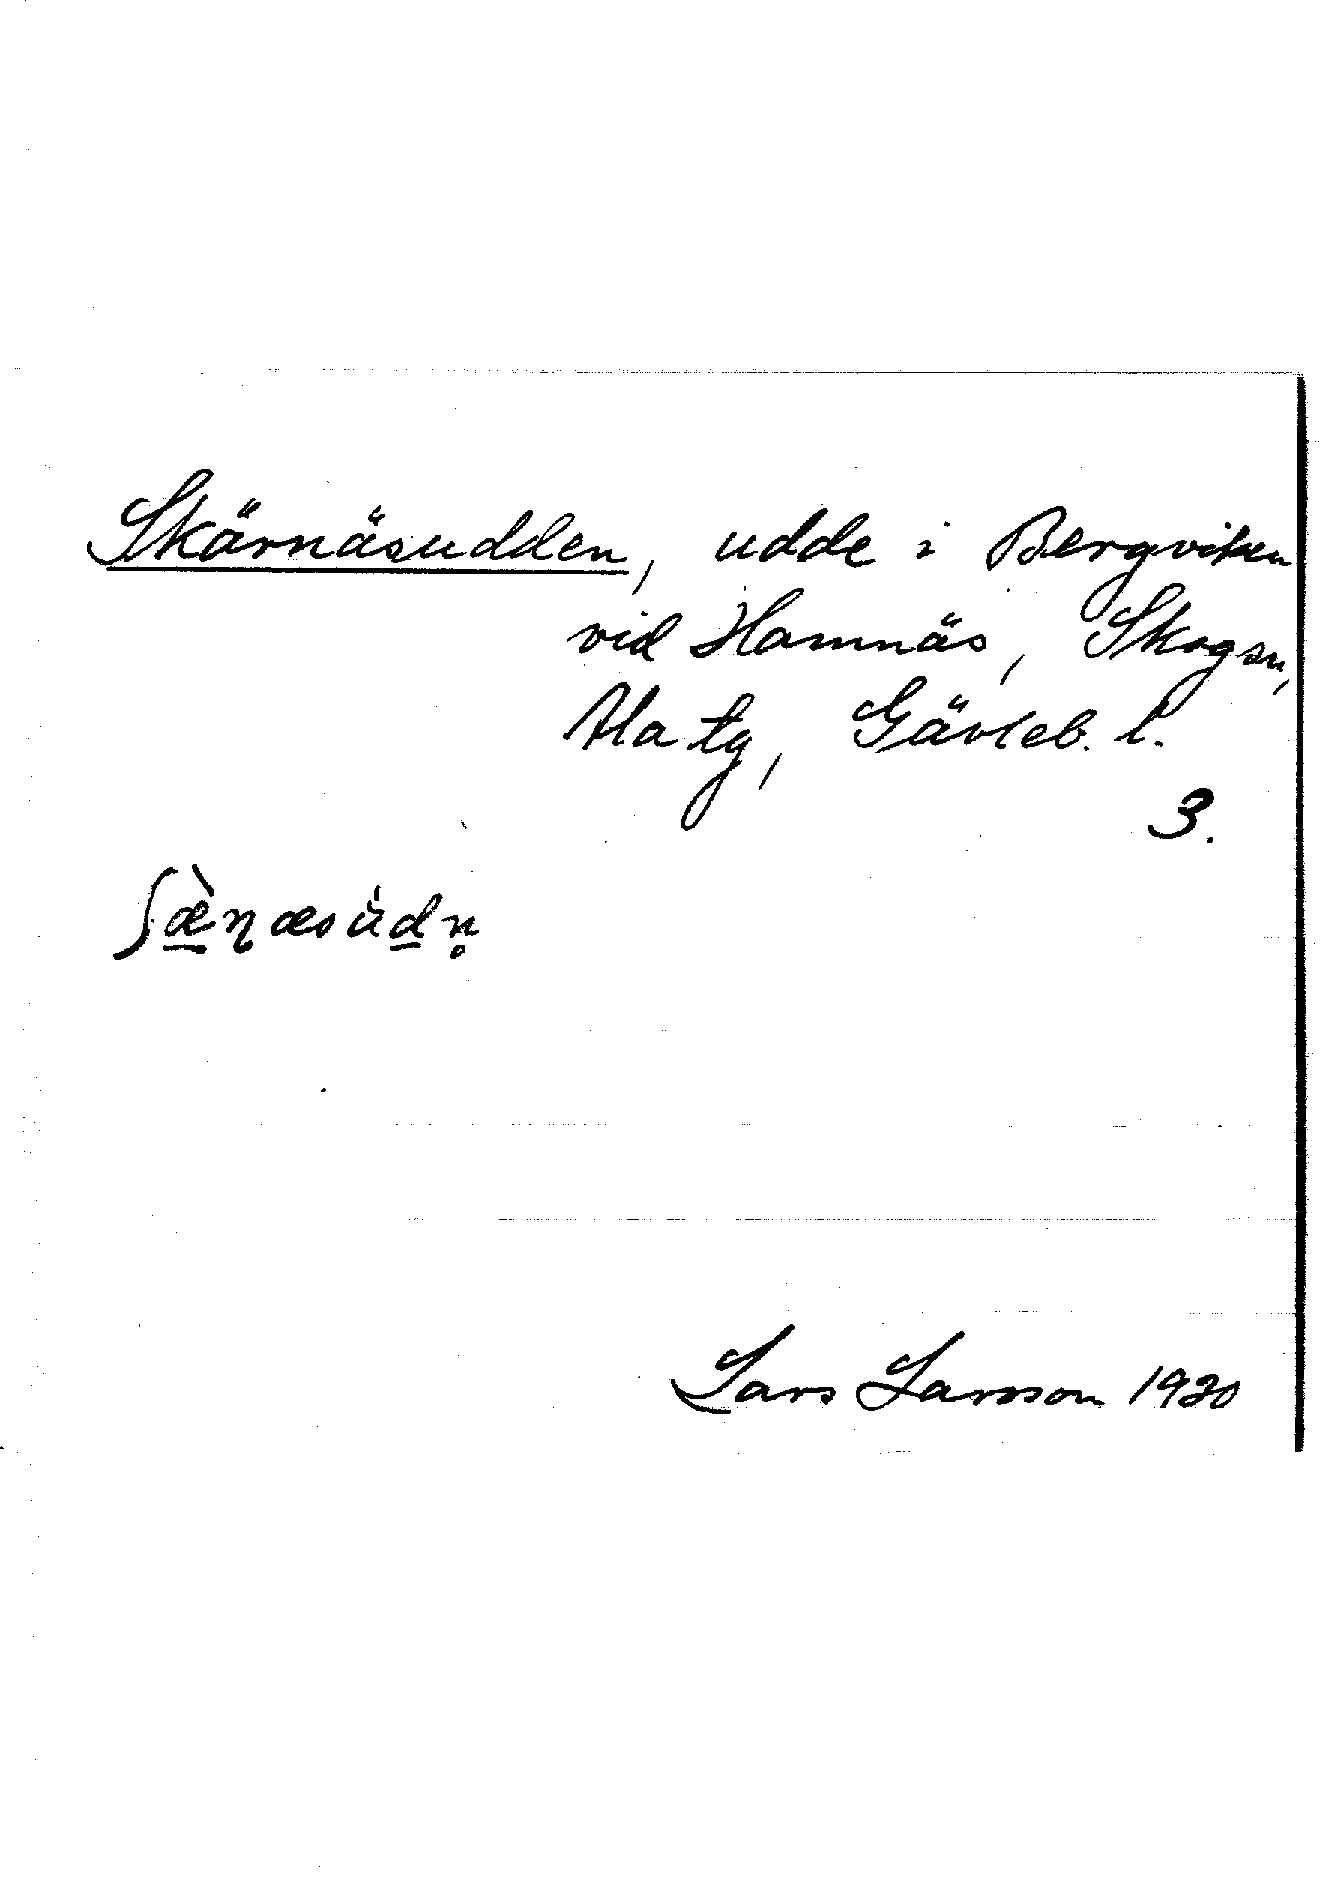 Skärnäsudden, udde i Bergviken
vid Hamnäs, Skogsn,
Ala tg, Gävleb. l.
3.
ʃæ̠̀ɳæsu̇d̠n̥
Lars Larsson 1930